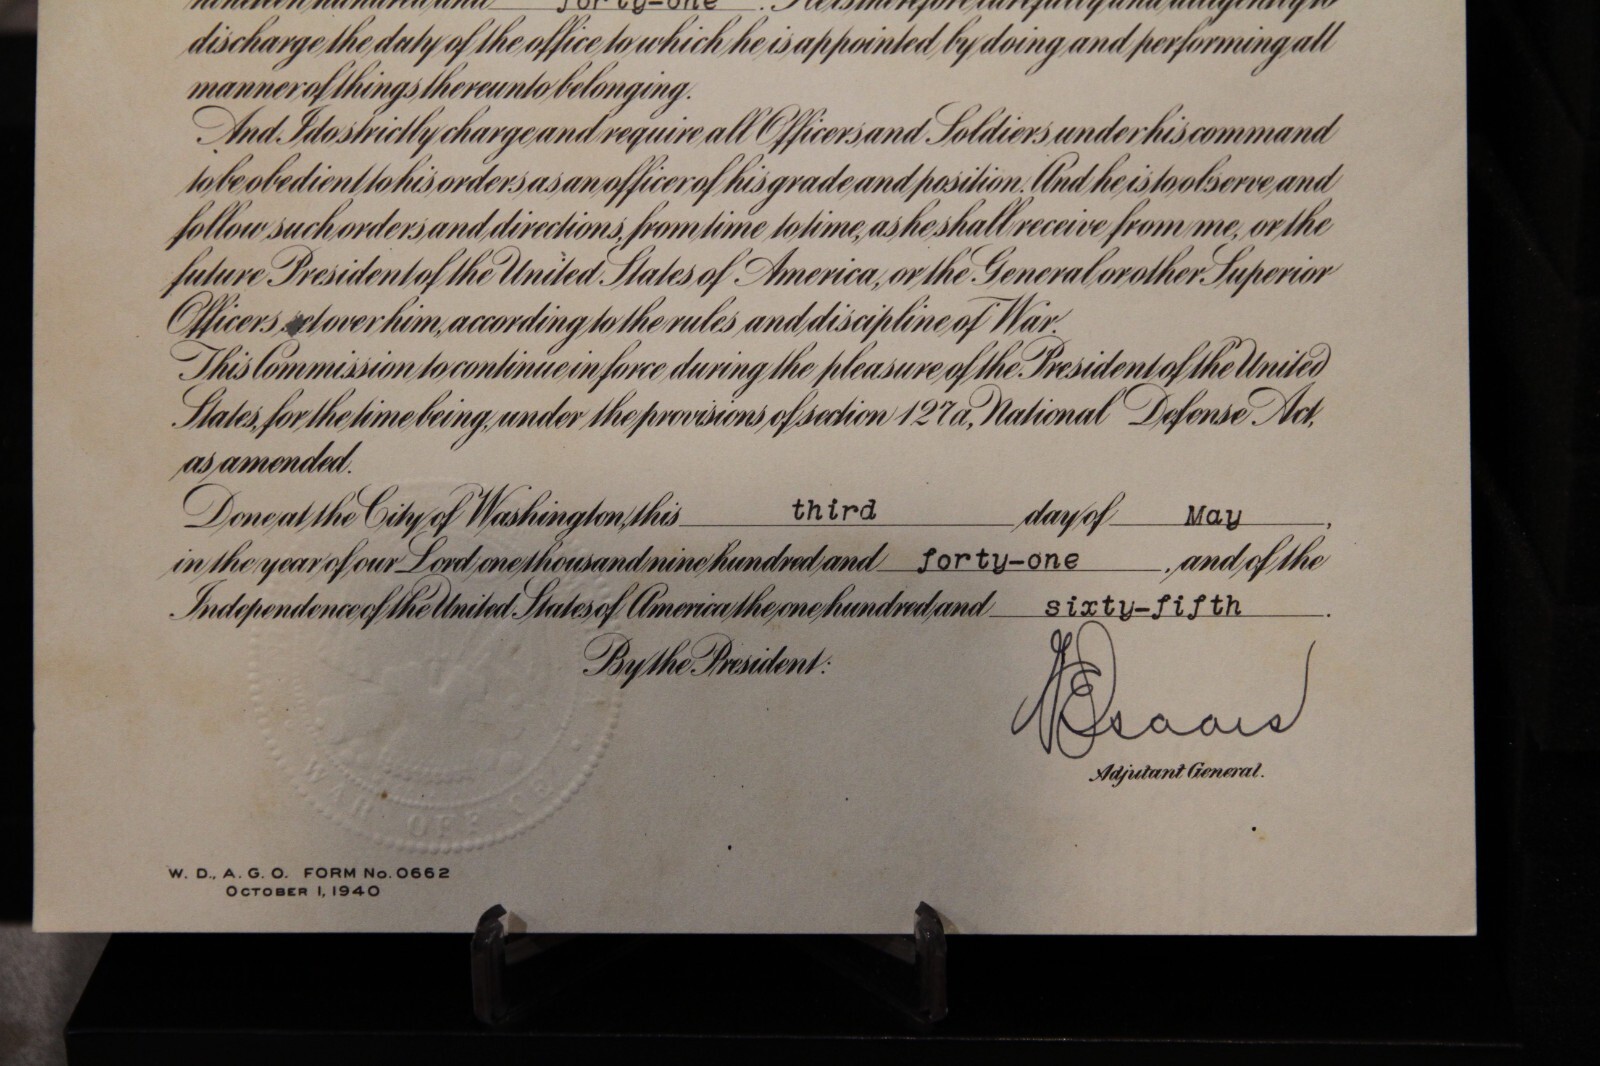 nineteen hundred and forty-one. He is therefore carefully and diligently to
discharge the duty of the office to which he is appointed by doing and performing all
manner of things thereunto belonging.
And I do strictly charge and require all Officers and Soldiers under his command
to be obedient to his orders as an officer of his grade and position. And he is to observe and
follow such orders and directions, from time to time, as he shall receive from me, or the
future President of the United States of America, or the General or other Superior
Officers set over him, according to the rules and discipline of War.
This Commission to continue in force during the pleasure of the President of the United
States, for the time being, under the provisions of section 127a, National Defense Act,
as amended.
Done at the City of Washington, this third day of May,
in the year of our Lord one thousand nine hundred and forty-one, and of the
Independence of the United States of America the one hundred and sixty-fifth.
By the President:
Adjutant General.
WAR OFFICE
W. D., A. G. O. FORM No. 0662
OCTOBER 1, 1940